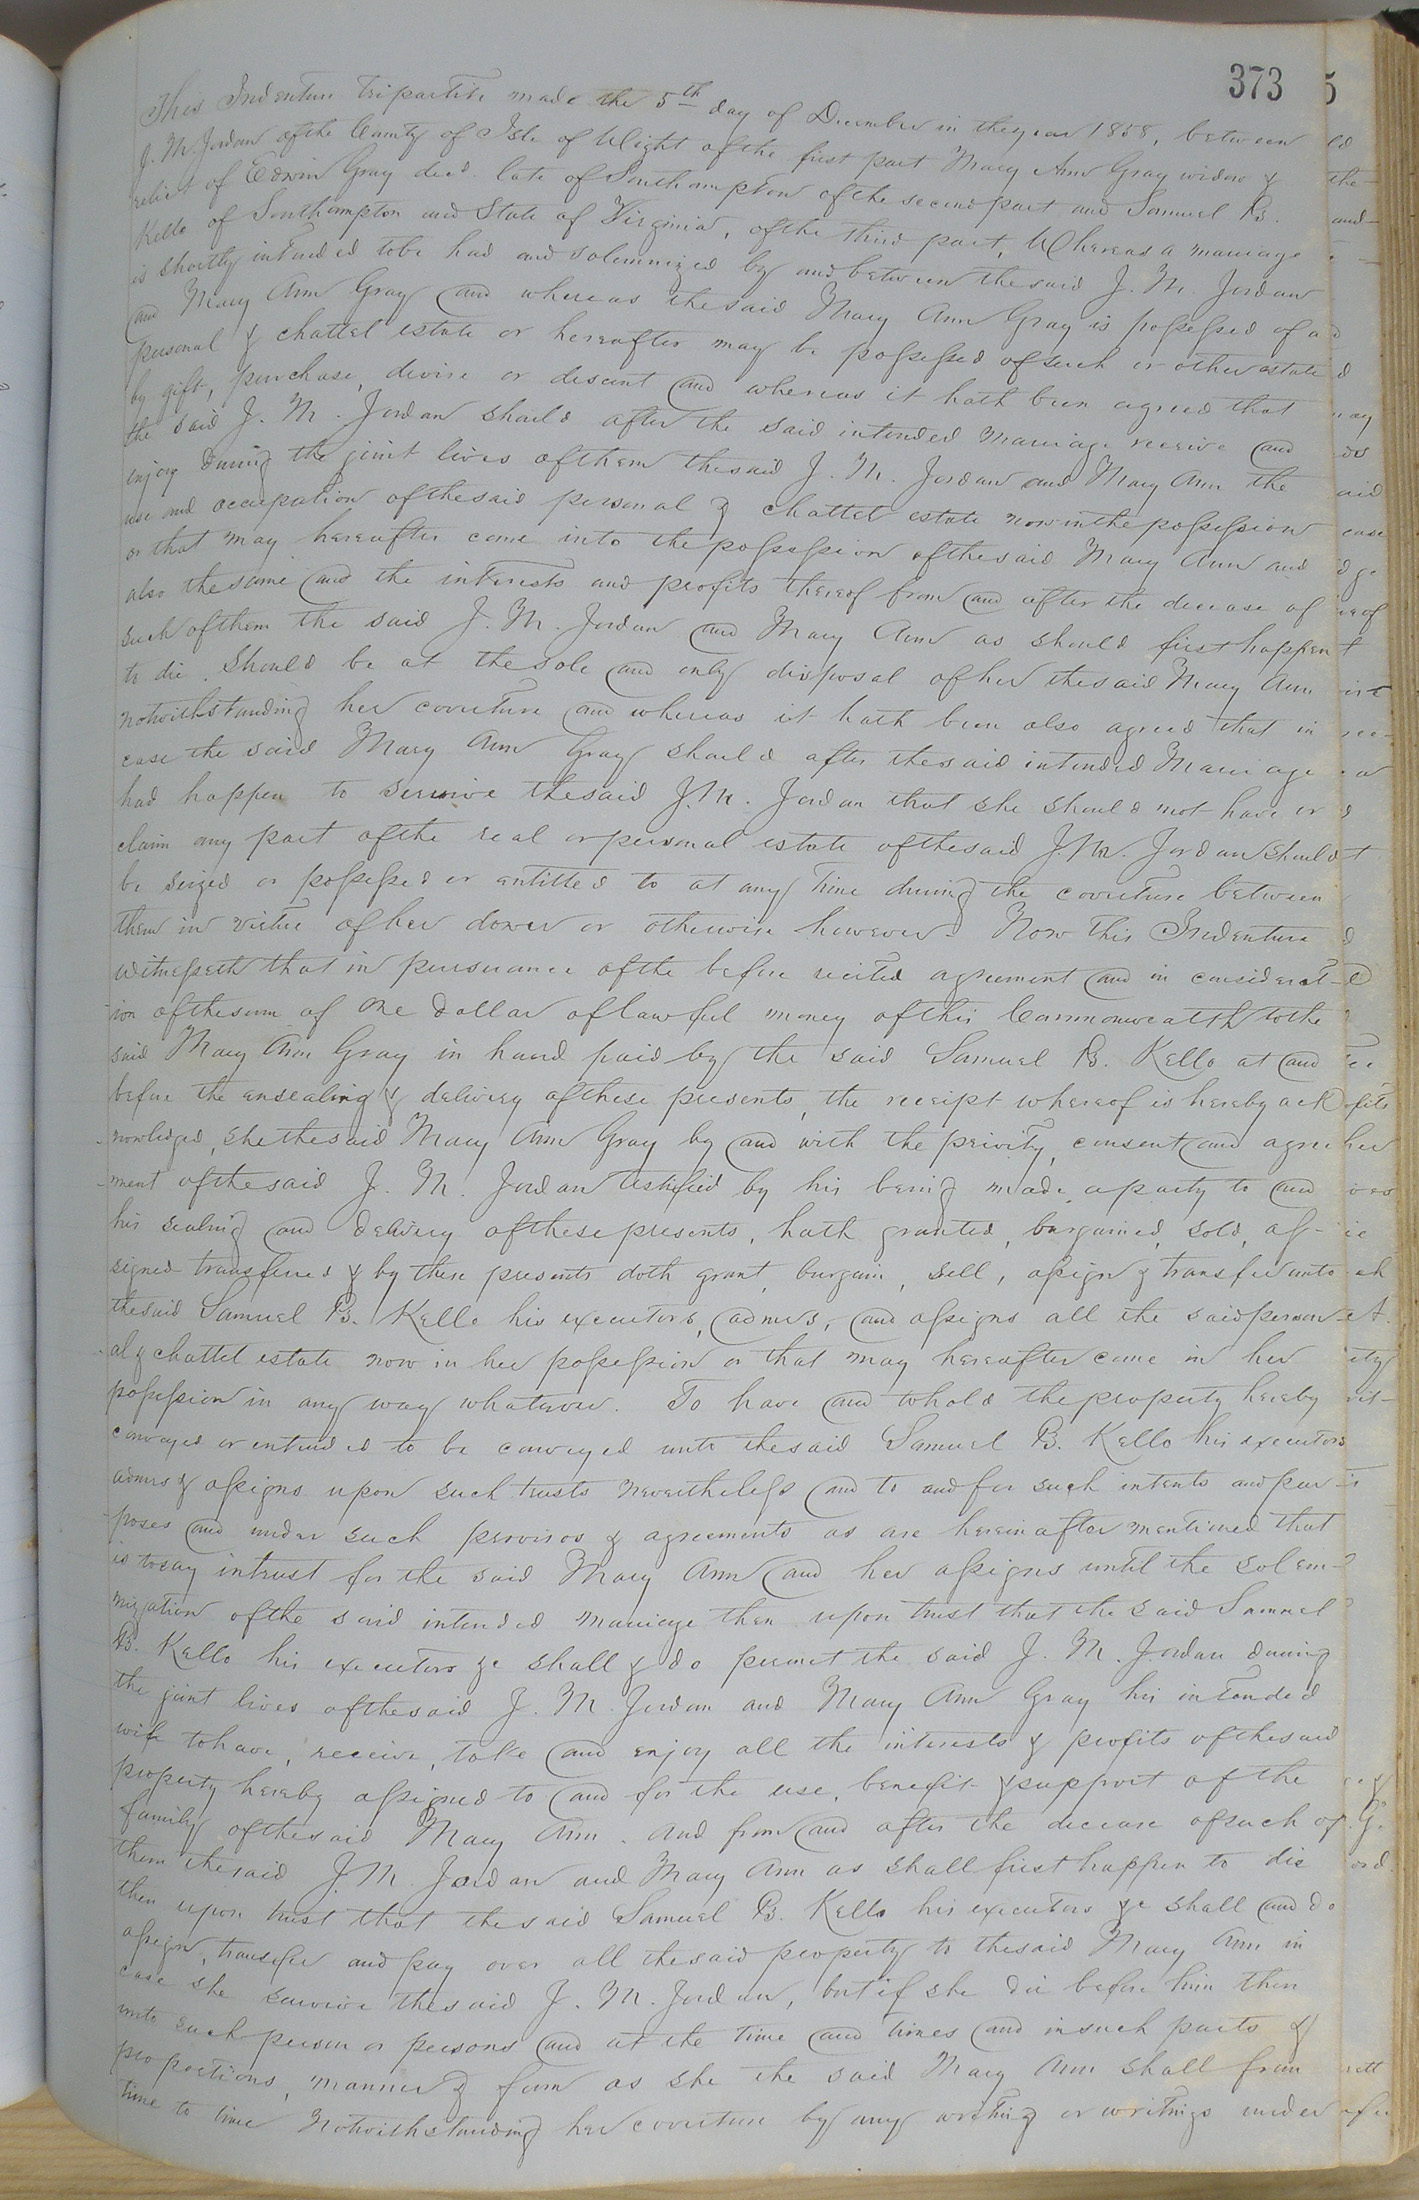 373
This Indenture tripartite made the 5th day of December in the year 1858, between
J. M. Jordan of the County of Isle of Wight of the first part Mary Ann Gray widow &
relict of Edwin Gray decd. late of Southampton of the second part and Samuel B.
Kello of Southampton and State of Virginia, of the third part, Whereas a marriage
is shortly intended to be had and solemnized by and between the said J. M. Jordan
and Mary Ann Gray and whereas the said Mary Ann Gray is possessed of a
personal & chattel estate or hereafter may be possessed of such or other estate
by gift, purchase, devise or descent and whereas it hath been agreed that
the said J. M. Jordan should after the said intended marriage receive and
enjoy during the joint lives of them the said J. M. Jordan and Mary Ann the
use and occupation of the said personal & chattel estate now in the possession
or that may hereafter come into the possession of the said Mary Ann and
also the same and the interests and profits thereof from and after the decease of
such of them the said J. M. Jordan and Mary Ann as should first happen
to die, should be at the sole and only disposal of her the said Mary Ann
notwithstanding her coverture and whereas it hath been also agreed that in
case the said Mary Ann Gray should after the said intended Marriage
had happen to survive the said J. M. Jordan that she should not have or
claim any part of the real or personal estate of the said J. M. Jordan should
be seized or possessed or entitled to at any time during the coverture between
them in virtue of her dower or otherwise however. Now this Indenture
witnesseth that in pursuance of the before recited agreement and in considerat-
ion of the sum of one dollar of lawful money of this Commonwealth to the
said Mary Ann Gray in hand paid by the said Samuel B. Kello at and
before the ensealing & delivery of these presents, the receipt whereof is hereby ack
nowledged, she the said Mary Ann Gray by and with the privity, consent and agree
ment of the said J. M. Jordan testified by his being made a party to and
his sealing and delivery of these presents, hath granted, bargained, sold, as-
signed transferred & by these presents doth grant, bargain, sell, assign & transfer unto
the said Samuel B. Kello his executors, admrs, and assigns all the said person-
al & chattel estate now in her possession or that may hereafter come in her
possession in any way whatever. To have and to hold the property hereby
conveyed or intended to be conveyed unto the said Samuel B. Kello his executors
admrs & assigns upon such trusts nevertheless and to and for such intents and pur-
poses and under such provisos & agreements as are hereinafter mentioned that
is to say in trust for the said Mary Ann and her assigns until the solem-
nization of the said intended marriage then upon trust that the said Samuel
B. Kello his executors &c shall & do permit the said J. M. Jordan during
the joint lives of the said J. M. Jordan and Mary Ann Gray his intended
wife to have, receive, take and enjoy all the interests & profits of the said
property hereby assigned to and for the use, benefit & support of the
family of the said Mary Ann. And from and after the decease of such of
them the said J. M. Jordan and Mary Ann as shall first happen to die
then upon trust that the said Samuel B. Kello his executors &c shall and do
assign, transfer and pay over all the said property to the said Mary Ann in
case she survive the said J. M. Jordan, but if she die before him then
unto such person or persons and at the time and times and in such parts &
proportions, manner & form as she the said Mary Ann shall from
time to time notwithstanding her coverture by any writing or writings under